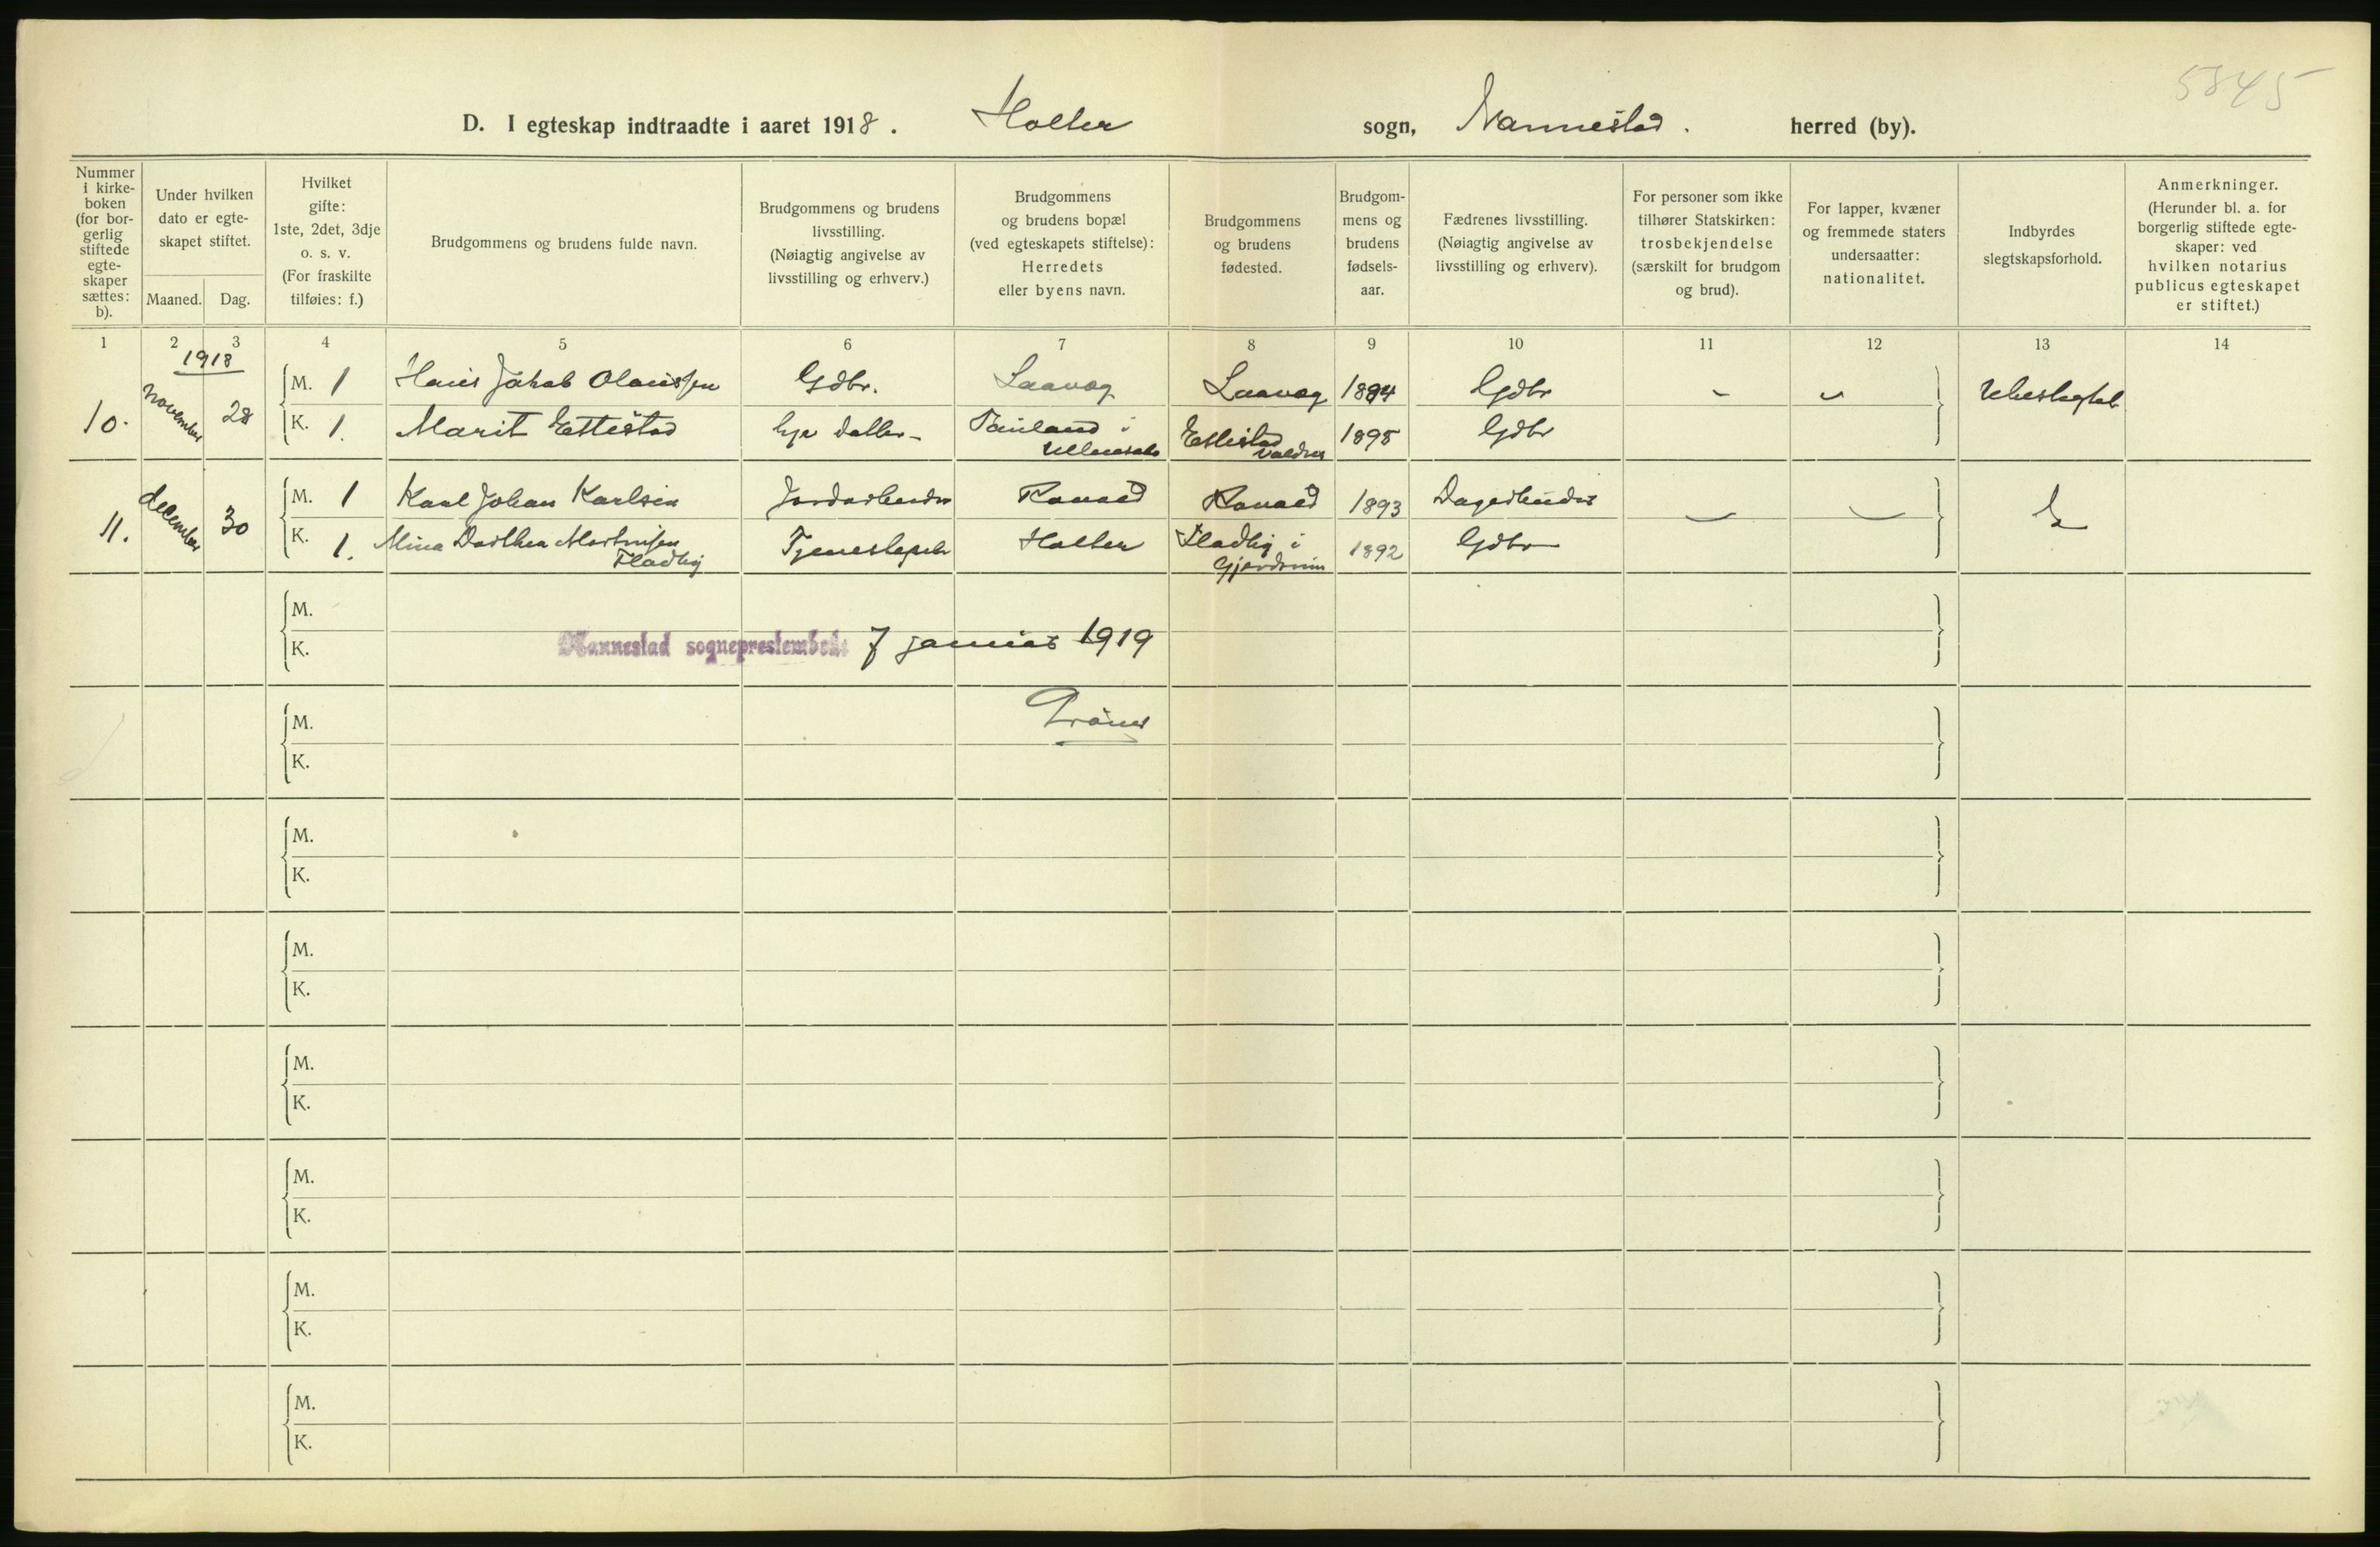 5845
D. I egteskap indtraadte i aaret 1918. Holter sogn, Nannestad. herred (by).
Nummer i kirke-boken (for bor-gerlig stiftede egte-skaper sættes: b).
Under hvilken dato er egte-skapet stiftet.
Maaned. Dag.
Hvilket gifte: 1ste, 2det, 3dje o. s. v. (For fraskilte tilføies: f.)
Brudgommens og brudens fulde navn.
Brudgommens og brudens livsstilling. (Nøiagtig angivelse av livsstilling og erhverv.)
Brudgommens og brudens bopæl (ved egteskapets stiftelse): Herredets eller byens navn.
Brudgommens og brudens fødested.
Brudgom-mens og brudens fødsels-aar.
Fædrenes livsstilling. (Nøiagtig angivelse av livsstilling og erhverv).
For personer som ikke tilhører Statskirken: trosbekjendelse (særskilt for brudgom og brud).
For lapper, kvæner og fremmede staters undersaatter: nationalitet.
Indbyrdes slegtskapsforhold.
Anmerkninger. (Herunder bl. a. for borgerlig stiftede egte-skaper: ved hvilken notarius publicus egteskapet er stiftet.)
1 2 3 4 5 6 7 8 9 10 11 12 13 14
1918
10. november 28 M. 1 Hans Jakob Olaussen Gdbr. Laavog Laavog 1894 Gdbr - -
K. 1. Marit Ettestad Ullensak Ettestad Valdres 1895 Gdbr
11. december 30 M. 1 Karl Johan Karlsen Jordarbeider Raaaad Raaaad 1893 Dagarbeider - -
K. 1. Mina Dorthea Martinsen Fladby Tjenestepike Holter Fladby i Gjerdrum 1892 Gdbr
M.
K.
Nannestad sogneprestembede 7 januar 1919
M.
K.
M.
K.
M.
K.
M.
K.
M.
K.
M.
K.
M.
K.